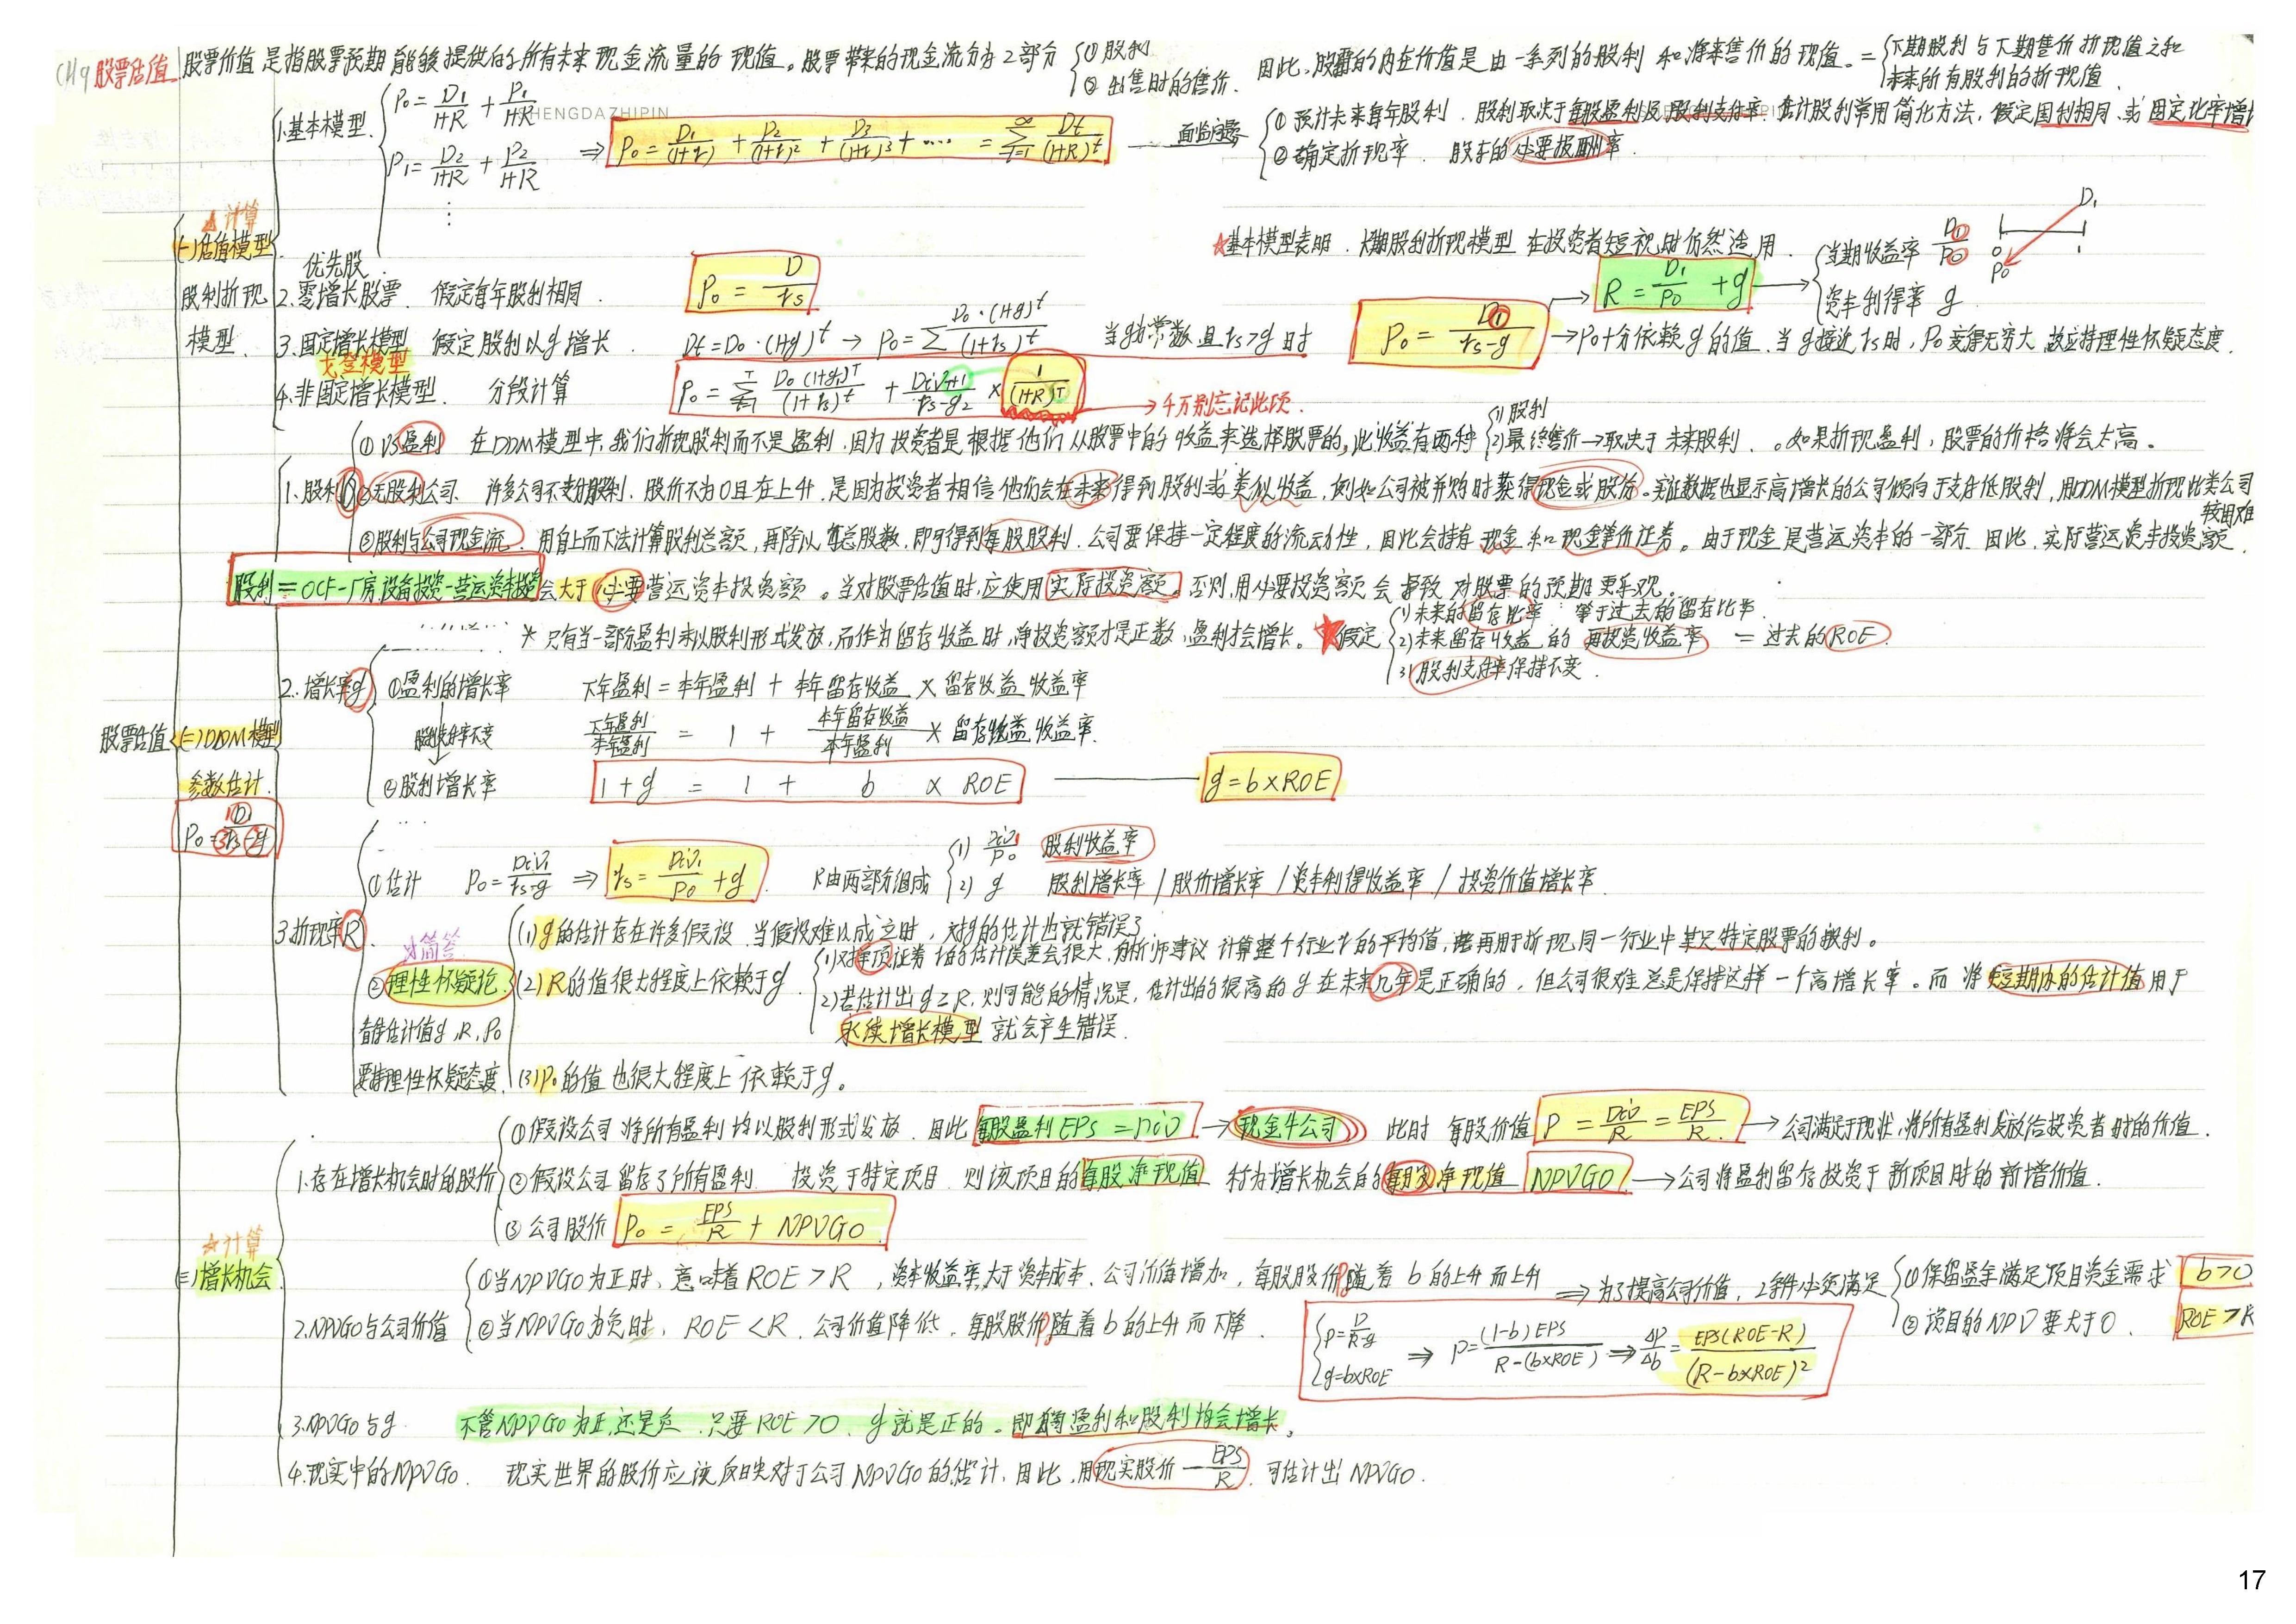 CH9 股票估值 股票价值是指股票预期能够提供的所有未来现金流量的现值。股票带来的现金流分为2部分 ①股利 ②出售时的售价. 因此,股票的内在价值是由一系列的股利和将来售价的现值。= 下期股利与下期售价折现值之和 未来所有股利的折现值.
1.基本模型. P₀=D₁/(1+R) + P₁/(1+R)
SHENGDAZHIPIN
P₁=D₂/(1+R) + P₂/(1+R)
⋮
⇒ P₀=D₁/(1+r) + D₂/(1+r)² + D₃/(1+r)³ + …… = ∑(t=1,∞) Dt/(1+R)^t
面临问题 ①预计未来每年股利. 股利取决于每股盈利及股利支付率. 估计股利常用简化方法,假定固利相同,或固定比率增长
②确定折现率. 股东的必要报酬率.
☆计算
(一)估值模型
股利折现模型.
☆基本模型表明. 长期股利折现模型在投资者短视时仍然适用.
优先股.
2.零增长股票. 假定每年股利相同. P₀ = D/rs
R = D₁/P₀ + g → 当期收益率 D₁/P₀ 资本利得率 g
D₁ 0 1 P₀
3.固定增长模型 假定股利以g增长. Dt=D₀·(1+g)^t → P₀=∑ D₀·(1+g)^t/(1+rs)^t 当g为常数且rs>g时 P₀ = D₁/(rs-g) →P₀十分依赖g的值.当g接近rs时,P₀变得无穷大,故应持理性怀疑态度.
戈登模型
4.非固定增长模型. 分段计算 P₀ = ∑(t=1,T) D₀(1+g₁)^T/(1+rs)^t + DivT+1/(rs-g₂) × 1/(1+R)^T → 千万别忘记此项.
股票估值
(二)DDM模型
参数估计.
P₀=①D₁/(③rs-②g)
1.股利D ①VS盈利 在DDM模型中,我们折现股利而不是盈利,因为投资者是根据他们从股票中的收益来选择股票的,此收益有两种 (1)股利 (2)最终售价→取决于未来股利. 。如果折现盈利,股票的价格将会太高。
②无股利公司. 许多公司不支付股利. 股价不为0且在上升,是因为投资者相信他们会在未来得到股利或类似收益,例如公司被并购时获得现金或股份。实证数据也显示高增长的公司倾向于支付低股利,用DDM模型折现此类公司较困难
③股利与公司现金流. 用自上而下法计算股利总额,再除以总股数,即可得到每股股利. 公司要保持一定程度的流动性,因此会持有现金和现金等价证券。由于现金是营运资本的一部分.因此,实际营运资本投资额.
股利=OCF-厂房、设备投资-营运资本投资 会大于必要营运资本投资额。当对股票估值时,应使用实际投资额。否则,用必要投资额会导致对股票的预期更乐观。
* 只有当一部分盈利未以股利形式发放,而作为留存收益时,净投资额才是正数,盈利才会增长。 ★假定 (1)未来的留存比率: 等于过去的留存比率.
(2)未来留存收益的再投资收益率 = 过去的ROE.
(3)股利支付率保持不变.
2.增长率g ①盈利的增长率 下年盈利=本年盈利 + 本年留存收益 × 留存收益收益率
股利支付率不变 下年盈利/本年盈利 = 1 + 本年留存收益/本年盈利 × 留存收益收益率.
②股利增长率 1+g = 1 + b × ROE —— g=b×ROE
3.折现率R. ①估计 P₀=Div₁/(rs-g) ⇒ rs=Div₁/P₀ + g. R由两部分组成 (1) Div₁/P₀ 股利收益率
(2) g 股利增长率/股价增长率/资本利得收益率/投资价值增长率.
☆简答
②理性怀疑论.
看待估计值g,R,P₀
要持理性怀疑态度.
(1)g的估计存在许多假设.当假设难以成立时,对g的估计也就错误了.
(2)R的值很大程度上依赖于g. (1)对单项证券r的估计误差会很大,分析师建议计算整个行业r的平均值,再用于折现同一行业中某只特定股票的股利。
(2)若估计出g≥R,则可能的情况是,估计出的很高的g在未来几年是正确的,但公司很难总是保持这样一个高增长率。而将短期内的估计值用于永续增长模型就会产生错误.
(3)P₀的值也很大程度上依赖于g。
☆计算
(三)增长机会.
1.存在增长机会时的股价 ①假设公司将所有盈利均以股利形式发放. 因此每股盈利EPS=Div → 现金牛公司 此时每股价值 P = Div/R = EPS/R. →公司满足于现状,将所有盈利发放给投资者时的价值.
②假设公司留存了所有盈利. 投资于特定项目. 则该项目的每股净现值 称为增长机会的每股净现值 NPVGO →公司将盈利留存投资于新项目时的新增价值.
③公司股价 P₀ = EPS/R + NPVGO.
2.NPVGO与公司价值 ①当NPVGO为正时,意味着ROE>R,资本收益率大于资本成本. 公司价值增加,每股股价随着b的上升而上升 ⇒为了提高公司价值,2条件必须满足 ①保留盈余满足项目资金需求 b>0
②当NPVGO为负时, ROE<R. 公司价值降低,每股股价随着b的上升而下降. ②项目的NPV要大于0. ROE>R
P=D/(R-g) g=b×ROE ⇒ P=(1-b)EPS/(R-(b×ROE)) ⇒ ΔP/Δb = EPS(ROE-R)/(R-b×ROE)²
3.NPVGO与g. 不管NPVGO为正还是负,只要ROE>0, g就是正的。即每期盈利和股利均会增长。
4.现实中的NPVGO. 现实世界的股价应该反映对于公司NPVGO的估计,因此,用现实股价-EPS/R. 可估计出NPVGO.
17